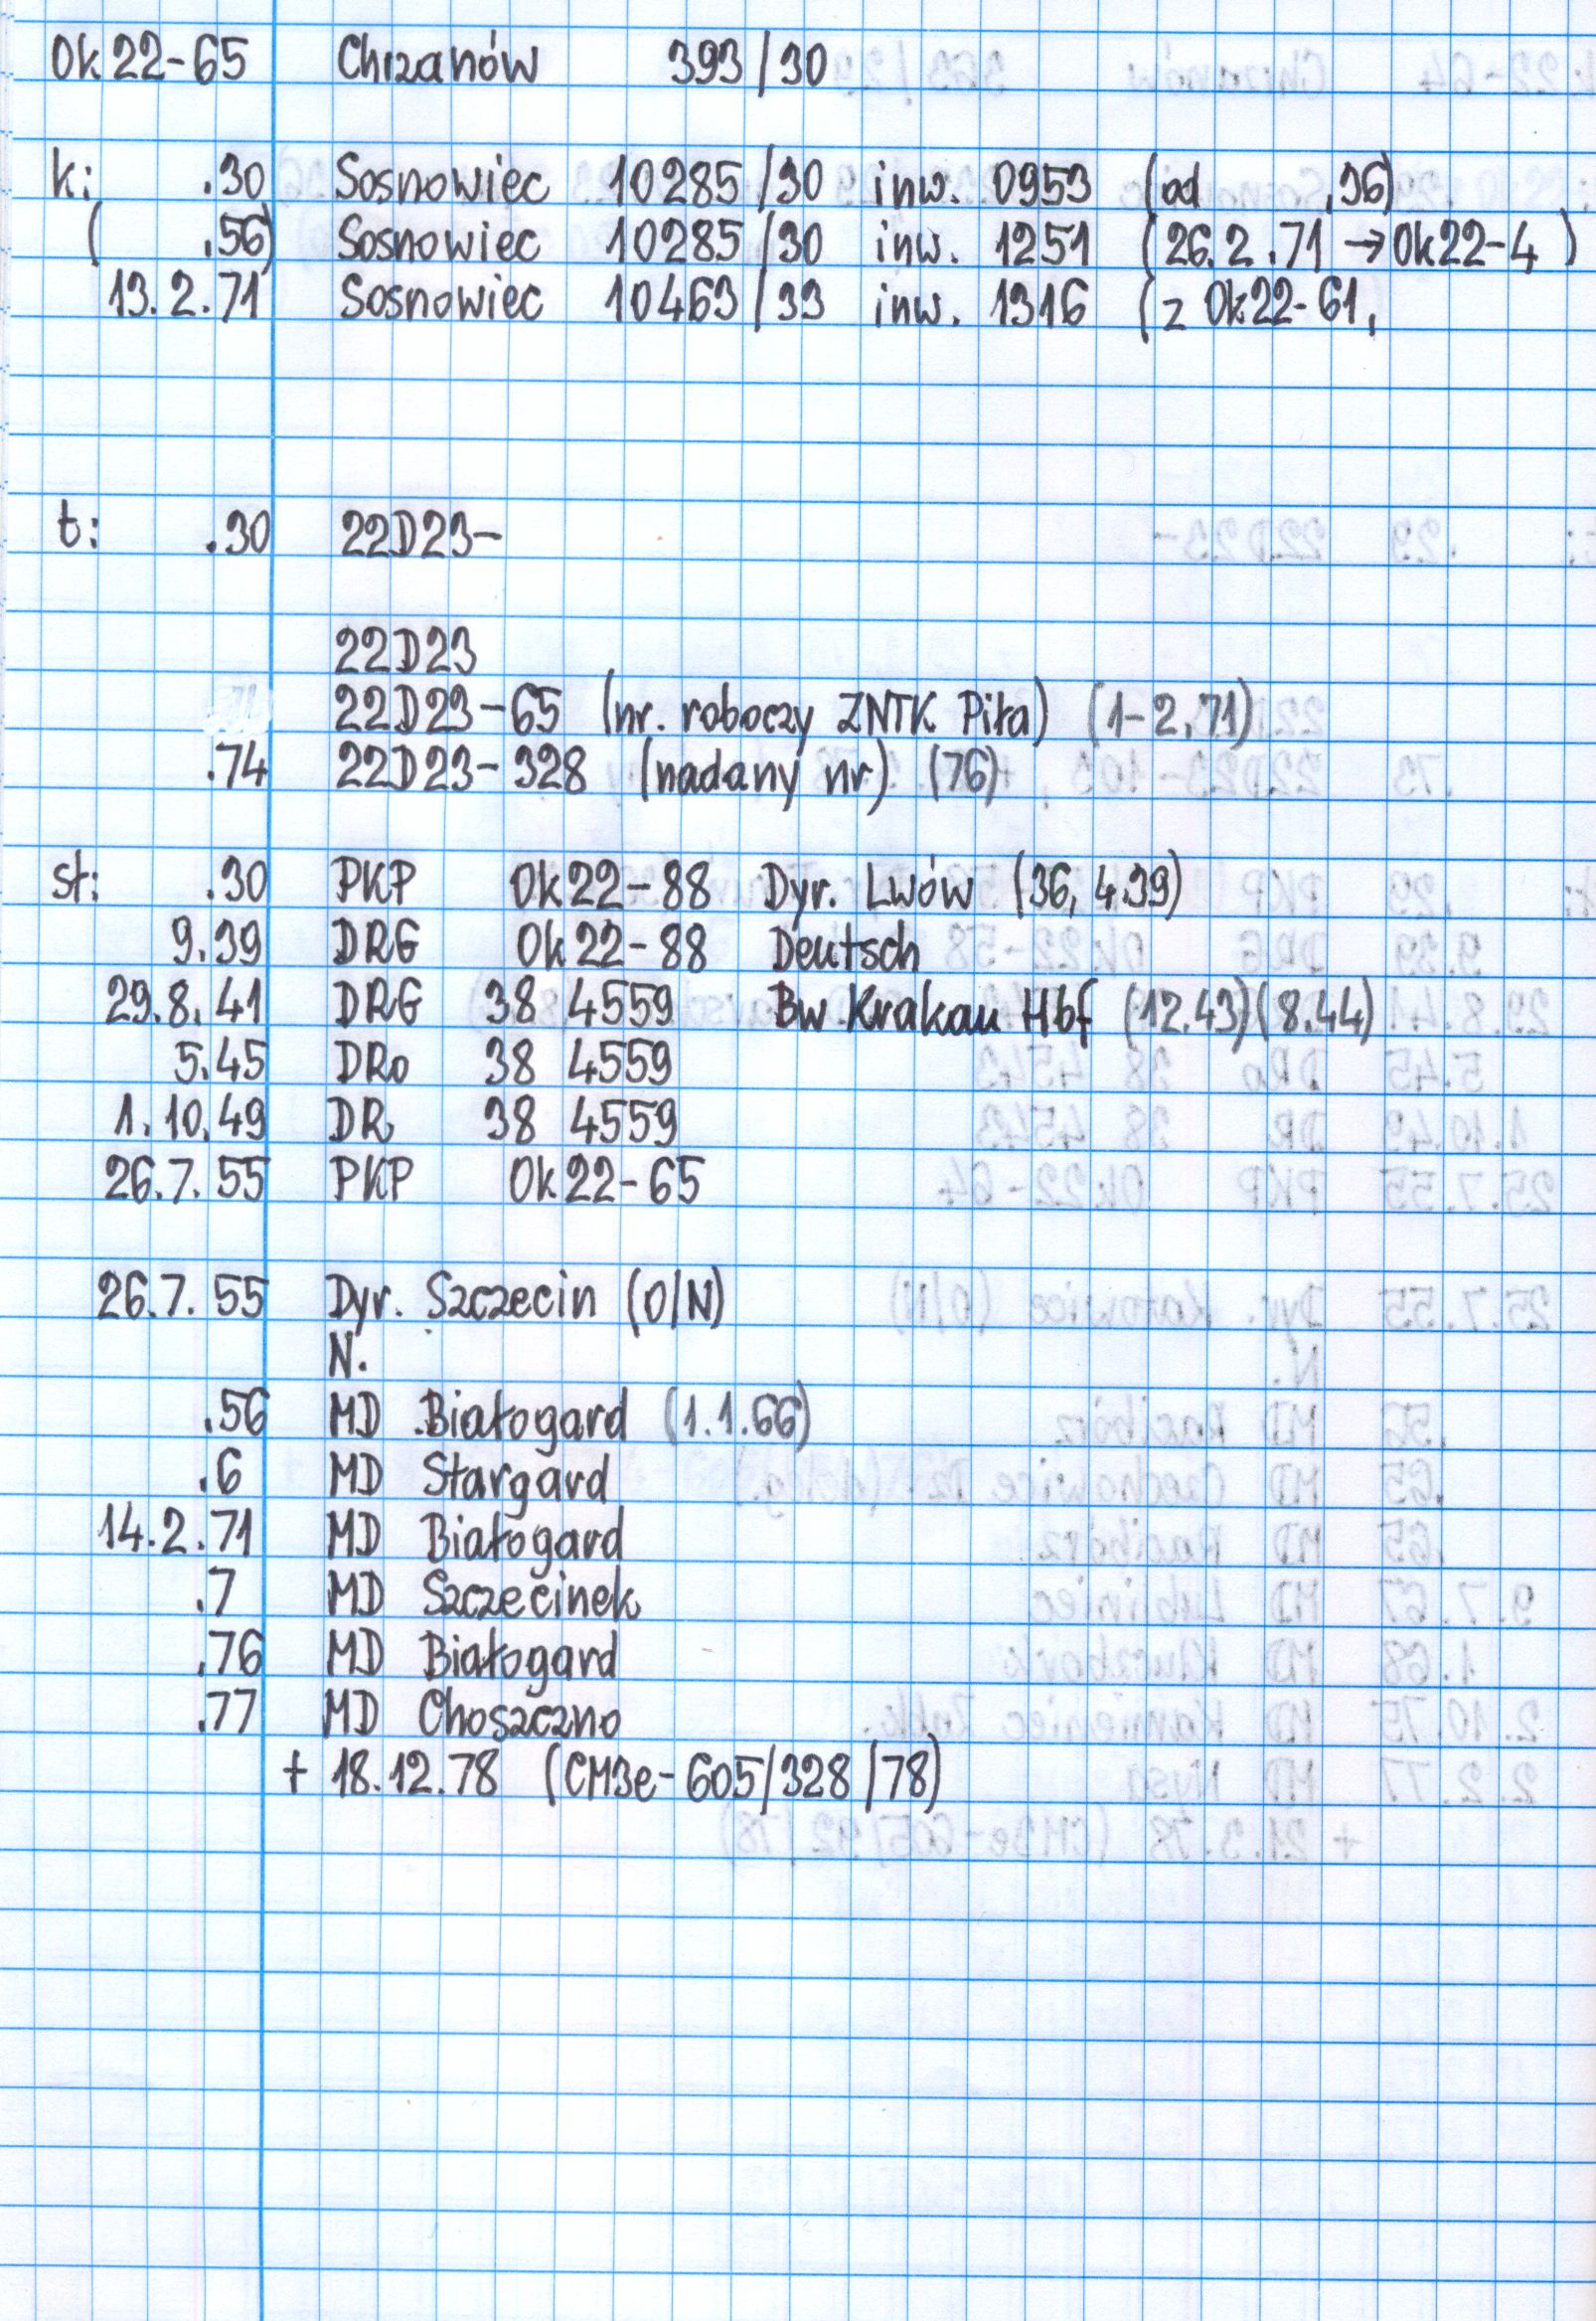 Ok22-65 Chrzanów 393/30
k: .30 Sosnowiec 10285/30 inw. 0953 (od .36)
( .56) Sosnowiec 10285/30 inw. 1251 (26.2.71 → Ok22-4)
13.2.71 Sosnowiec 10463/33 inw. 1316 (z Ok22-61,
t: .30 22D23-
22D23
22D23-65 (nr. roboczy ZNTK Piła) (1-2.71)
.74 22D23-328 (nadany nr) (76)
st: .30 PKP Ok22-88 Dyr. Lwów (36, 4.39)
9.39 DRG Ok22-88 Deutsch
29.8.41 DRG 38 4559 Bw Krakau Hbf (12.43)(8.44)
5.45 DRo 38 4559
1.10.49 DR 38 4559
26.7.55 PKP Ok22-65
26.7.55 Dyr. Szczecin (O/N)
N.
.56 MD Białogard (1.1.66)
.6 MD Stargard
14.2.71 MD Białogard
.7 MD Szczecinek
.76 MD Białogard
.77 MD Choszczno
+ 18.12.78 (CM3e-605/328/78)